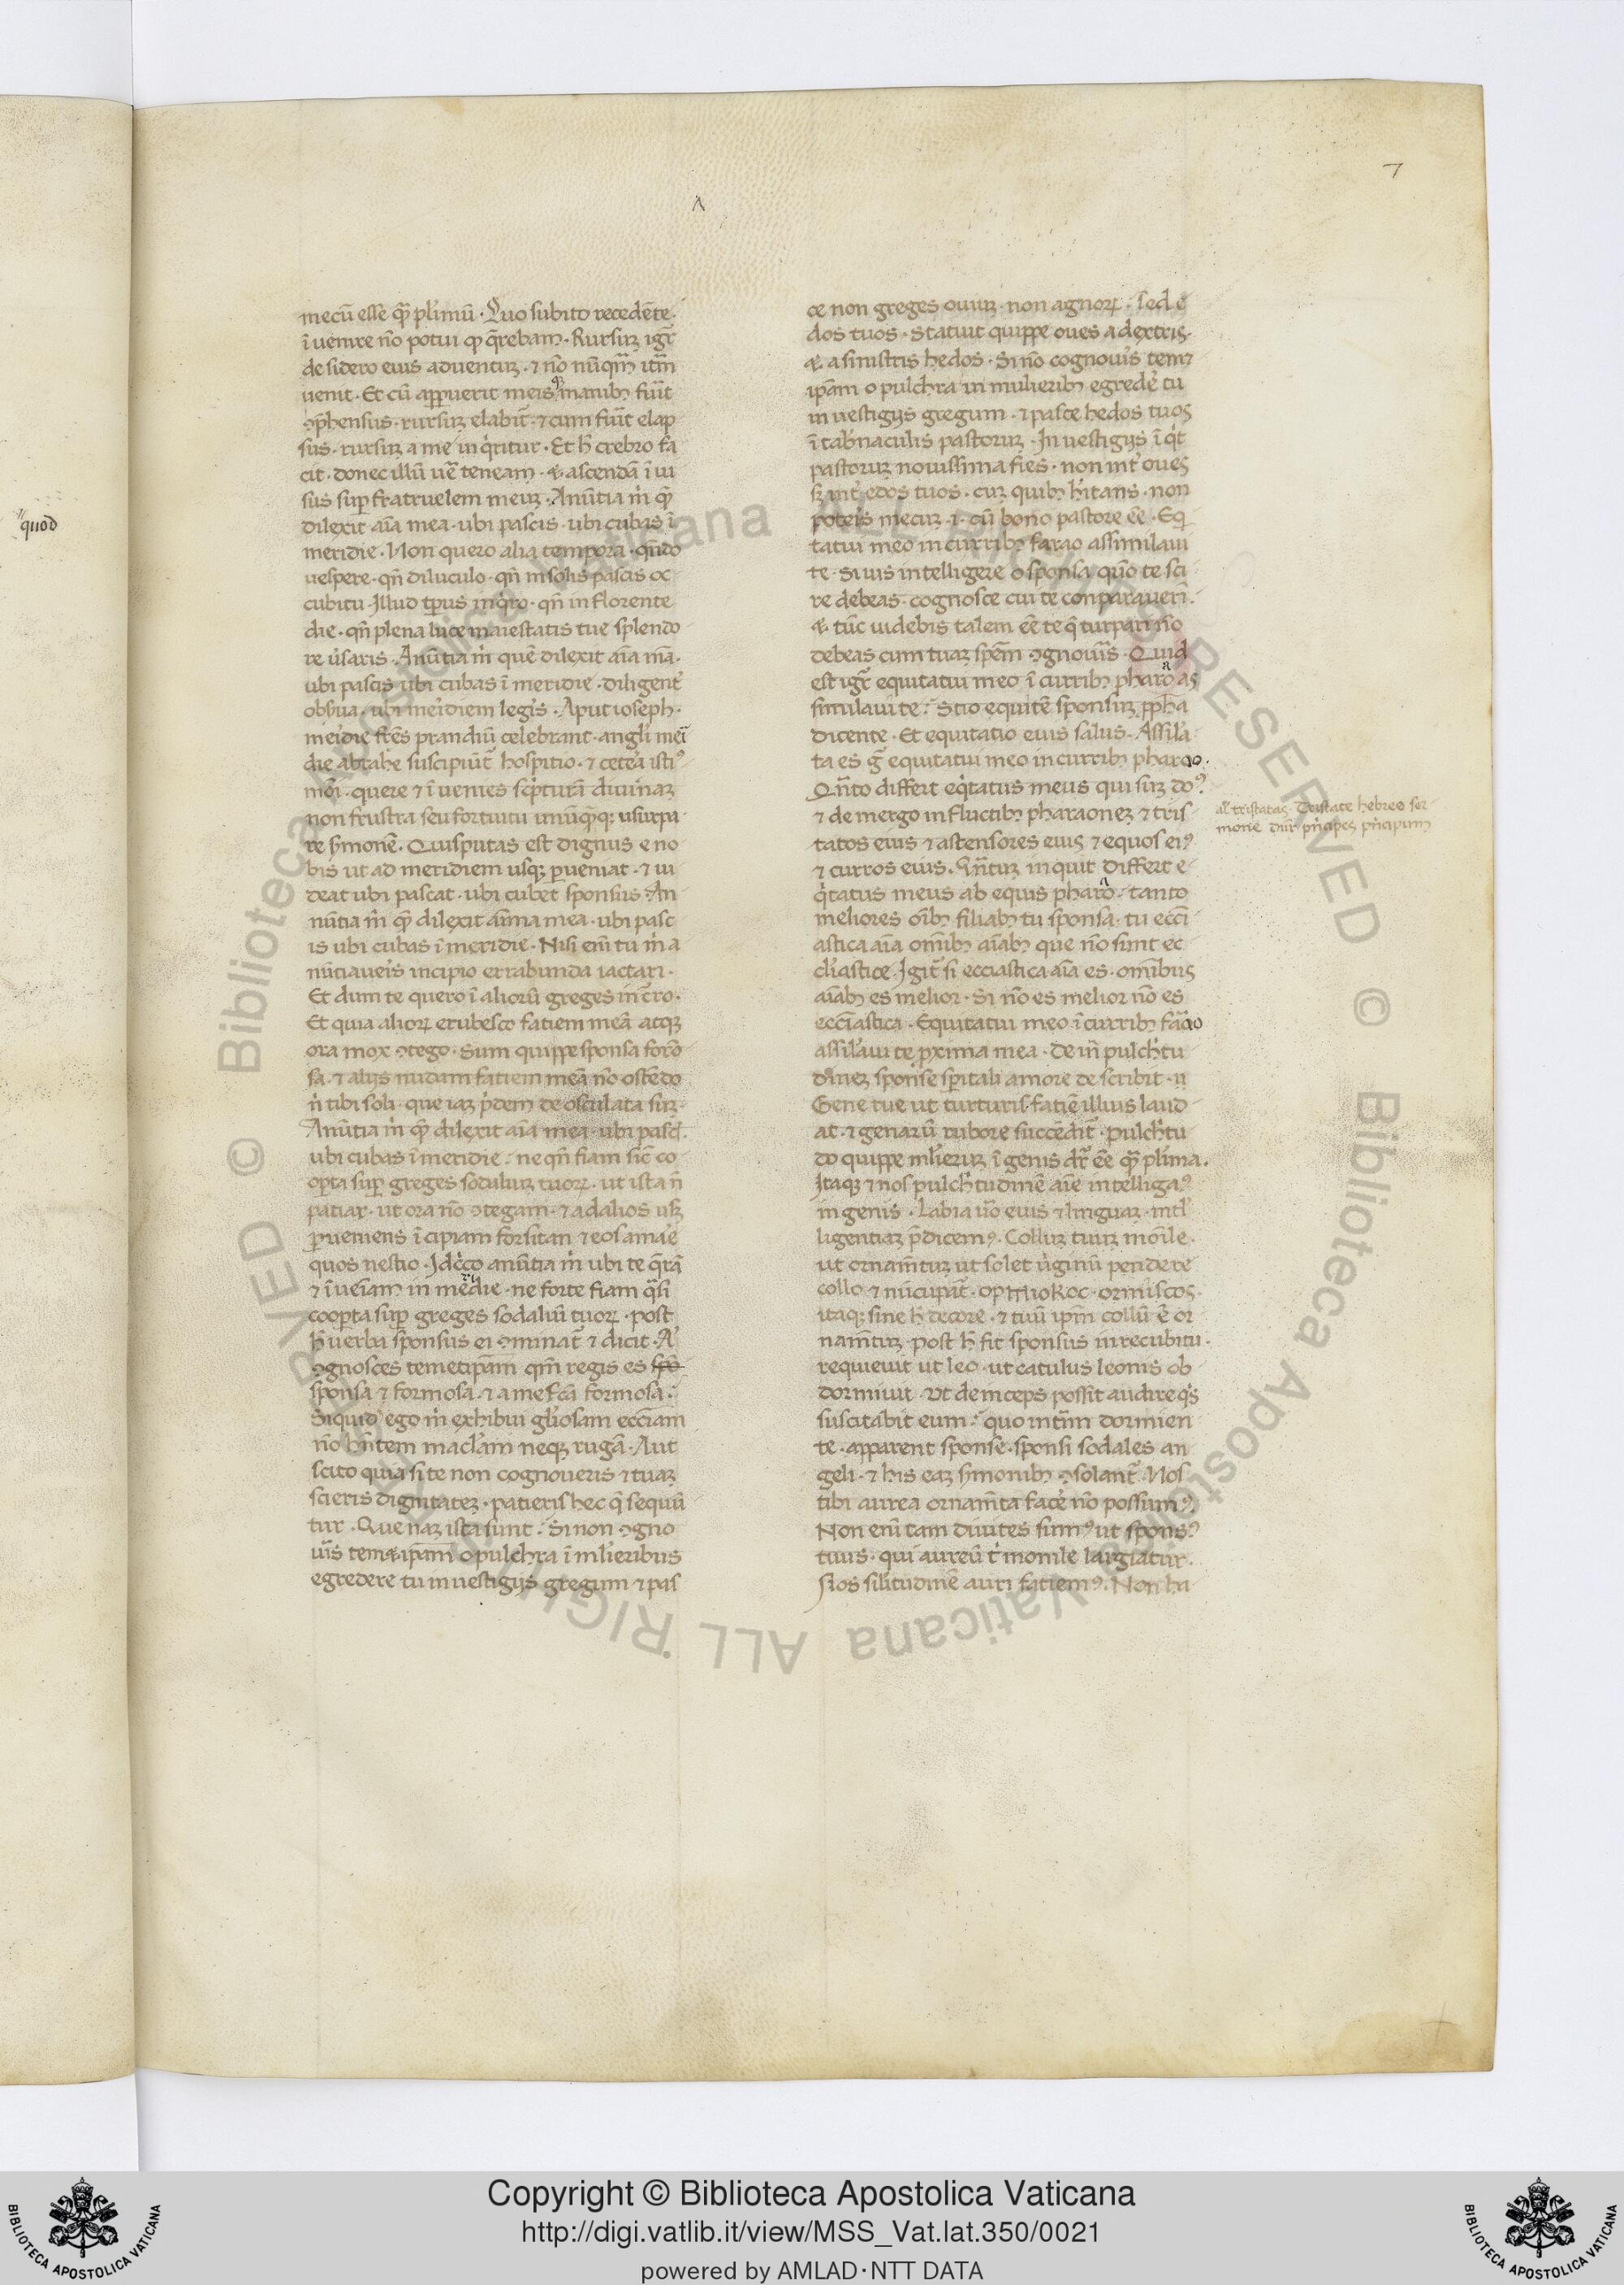 7
A
quod
mecū esse q̄ plimū · Quo subito recedēte ·
ī uenire nō potui qđ q̄rebam · Rursuꝫ igr̄
desidero eius aduentuꝫ · ⁊ nō nūq̄m itm̄
uenit · Et cū apparuerit meis q; manibꝫ fuīt
ꝯphensus · rursuꝫ elabit̄ · ⁊ cum fuīt elap
sus · rursuꝫ a me inq̇ritur · Et h̄ crebro fa
cit · donec illū ue᷑ teneam · ⁊ ascendā ī ui
sus sup fratruelem meuꝫ · Anūtia ṁ qē
dilexit aīa mea · ubi pascis · ubi cubas ī
meridie · Non quero alia tempora · qn̄do
uespere · qn̄ diluculo · qn̄ in solis pascis oc
cubitu · Illud tp̄us inq̇ro · qn̄ in florente
die · qn̄ plena luce maiestatis tue splendo
re u̇saris · Anūtia ṁ quē dilexit aīa m̄a ·
ubi pascis ubi cubas ī meridie · diligent̕
obserua · ubi me̕idiem legis · Aput ioseph ·
me̕idie fr̄es prandiū celebrant · angl̕i mei᷑
die abrahe suscipiūt̄ hospitio · ⁊ cete̕a isti᷒
mo̕i · quere ⁊ ī uenies sc̕pturā diuinaꝫ
non frustra seu fortuitu unūq̄qꝫ usurpa
re s̕monē · Quis putas est dignus e no
bis ut ad meridiem usqꝫ pueniat · ⁊ ui
deat ubi pascat · ubi cubet sponsus · An
nūtia ṁ qē dilexit anima mea · ubi pasc
is ubi cubas ī meridie · Nisi eni᷑ tu ṁ a
nūtiaue̕is incipio errabunda iactari ·
Et dum te quero ī aliorū greges inc̄ro ·
Et quia alioꝝ erubesco fatiem meā atqꝫ
ora mox ꝯtego · Sum quippe sponsa formo
sa · ⁊ alijs nudam fatiem meā nō ostēdo
n̄ tibi soli · que iaꝫ ṗdem deosculata suꝫ ·
Anūtia ṁ qē dilexit aīa mea · ubi pasc̄ ·
ubi cubas ī meridie : ne qn̄ fiam sic̄ co
opta sup greges sodaliuꝫ tuoꝝ · ut ista n̄
patiar · ut ora nō ꝯtegam · ⁊ ad alios usqꝫ
pueniens ī cipiam forsitan ⁊ eos ama̕e
quos nescio · Idc̕co anūtia ṁ ubi te q̄rā
⁊ ī ueīam in meridie · ne forte fiam q̄si
coopta sup greges sodaliū tuoꝝ · post
h̄ uerba sponsus ei ꝯminat̄ ⁊ dicit · A᷑
ꝯgnosces temetip̄am qm̄ regis es spō
sponsa ⁊ formosa · ⁊ a me fc̄a formosa :
Siquid̄ ego ṁ exhibui gl̕iosam ecc̄iam
nō hn̄tem macl̕am neqꝫ rugā · Aut
scito quia si te non cognoueris ⁊ tuaꝫ
scieris dignitateꝫ · patieris hec q̄ sequū
tur · Que naꝫ ista sunt : Si non ꝯgno
uīs temetip̄am o pulchra ī mlieribus
egredere tu in uestigijs gregum ⁊ pas
ce non greges ouiuꝫ · non agnoꝝ · sed e
dos tuos · Statuit quippe oues a dextris ·
⁊ a sinistris hedos · Si nō cognouis̄ temet
ip̄am o pulchra in mulieribꝫ egrede̕ tu
in uestigijs gregum · ⁊ pasce hedos tuos
ī tab̕naculis pastoruꝫ · In uestigijs ī q̇t
pastoruꝫ nouissima fies · non int̕ oues
sꝫ int̕ edos tuos · cuꝫ quibꝫ h̄itans · non
poteris mecuꝫ · i · cū bono pastore ēe · Eq̇
tatui meo in curribꝫ farao assimilaui
te · Si uis intelligere o sponsa quō te sci
re debeas · cognosce cui te conparaueri ·
⁊ tūc uidebis talem ēe te q̄ turpari nō
debeas cum tuaꝫ sp̄em ꝯgnouīs · Quid
est igr̄ equitatui meo ī curribꝫ pharao as
similaui te : Scio equitē sponsuꝫ ꝓph̄a
dicente · Et equitatio eius salus · Assila̕
ta es g̊ equitatui meo in curribꝫ pharao ·
Qn̄to differt eq̇tatus meus qui suꝫ do᷒
⁊ demergo in fluctibꝫ pharaoneꝫ ⁊ tris
tatos eius ⁊ ascensores eius ⁊ equos ei᷒
⁊ curros eius · Qn̄tuꝫ inquit differt e
q̇tatus meus ab equis pharao · tanto
meliores oībꝫ filiabꝫ tu sponsa · tu ecc̄i
astica aīa omībꝫ aīabꝫ que nō sunt ec
cl̕iastice · Igit̄ si ecc̄iastica aīa es · omnibus
aīabꝫ es melior · Si nō es melior nō es
ecc̄iastica · Equitatui meo ī curribꝫ farao
assila̕ui te ꝓxima mea · dein̄ pulch̕itu
dīneꝫ sponse sp̄itali amore describit · ij
Gene tue ut turturis fatiē illius laud
at · ⁊ genarū rubore succēdit̄ · Pulch̕itu
do quippe ml̕ieruꝫ ī genis dr̄ ēe q̄ plima ·
Itaqꝫ ⁊ nos pulch̕itudinē aīe intelliga᷒
in genis · Labia u̇o eius ⁊ linguaꝫ · intl̕
ligentiaꝫ p̄dicem᷒ · Colluꝫ tuuꝫ monīle ·
ut ornam̄tuꝫ ut solet u̇ginū pendere
collo ⁊ nūcupat̄ · ορμιοκος · ormiscos ·
itaqꝫ sine h̄ decore · ⁊ tuū ip̄m collū ē or
nam̄tuꝫ · post h̄ fit sponsus in recubitu ·
requieuit ut leo · ut catulus leonis ob
dormiuit · Ut deinceps possit audire q̇s
suscitabit eum : quo int̄im dormien
te · apparent sponse · sponsi sodales an
geli · ⁊ his eaꝫ s̕monibꝫ ꝯsolant̄ · Nos
tibi aurea ornam̄ta face̕ nō possum᷒ ·
Non eni᷑ tam diuites sum᷒ ut spons᷒
tuus · qui aureū t̄ monile largiatur ·
Sios silitudinē auri fatiem᷒ · Non ha
al̕ tristatas Tristate hebreo ser
mone dn̄r p̄ncipes p̄ncipum
© Biblioteca Apostolica Vaticana ALL RIGHTS RESERVED
© Biblioteca Apostolica Vaticana ALL RIGHTS RESERVED
Copyright © Biblioteca Apostolica Vaticana
http://digi.vatlib.it/view/MSS_Vat.lat.350/0021
powered by AMLAD·NTT DATA
BIBLIOTECA APOSTOLICA VATICANA
BIBLIOTECA APOSTOLICA VATICANA